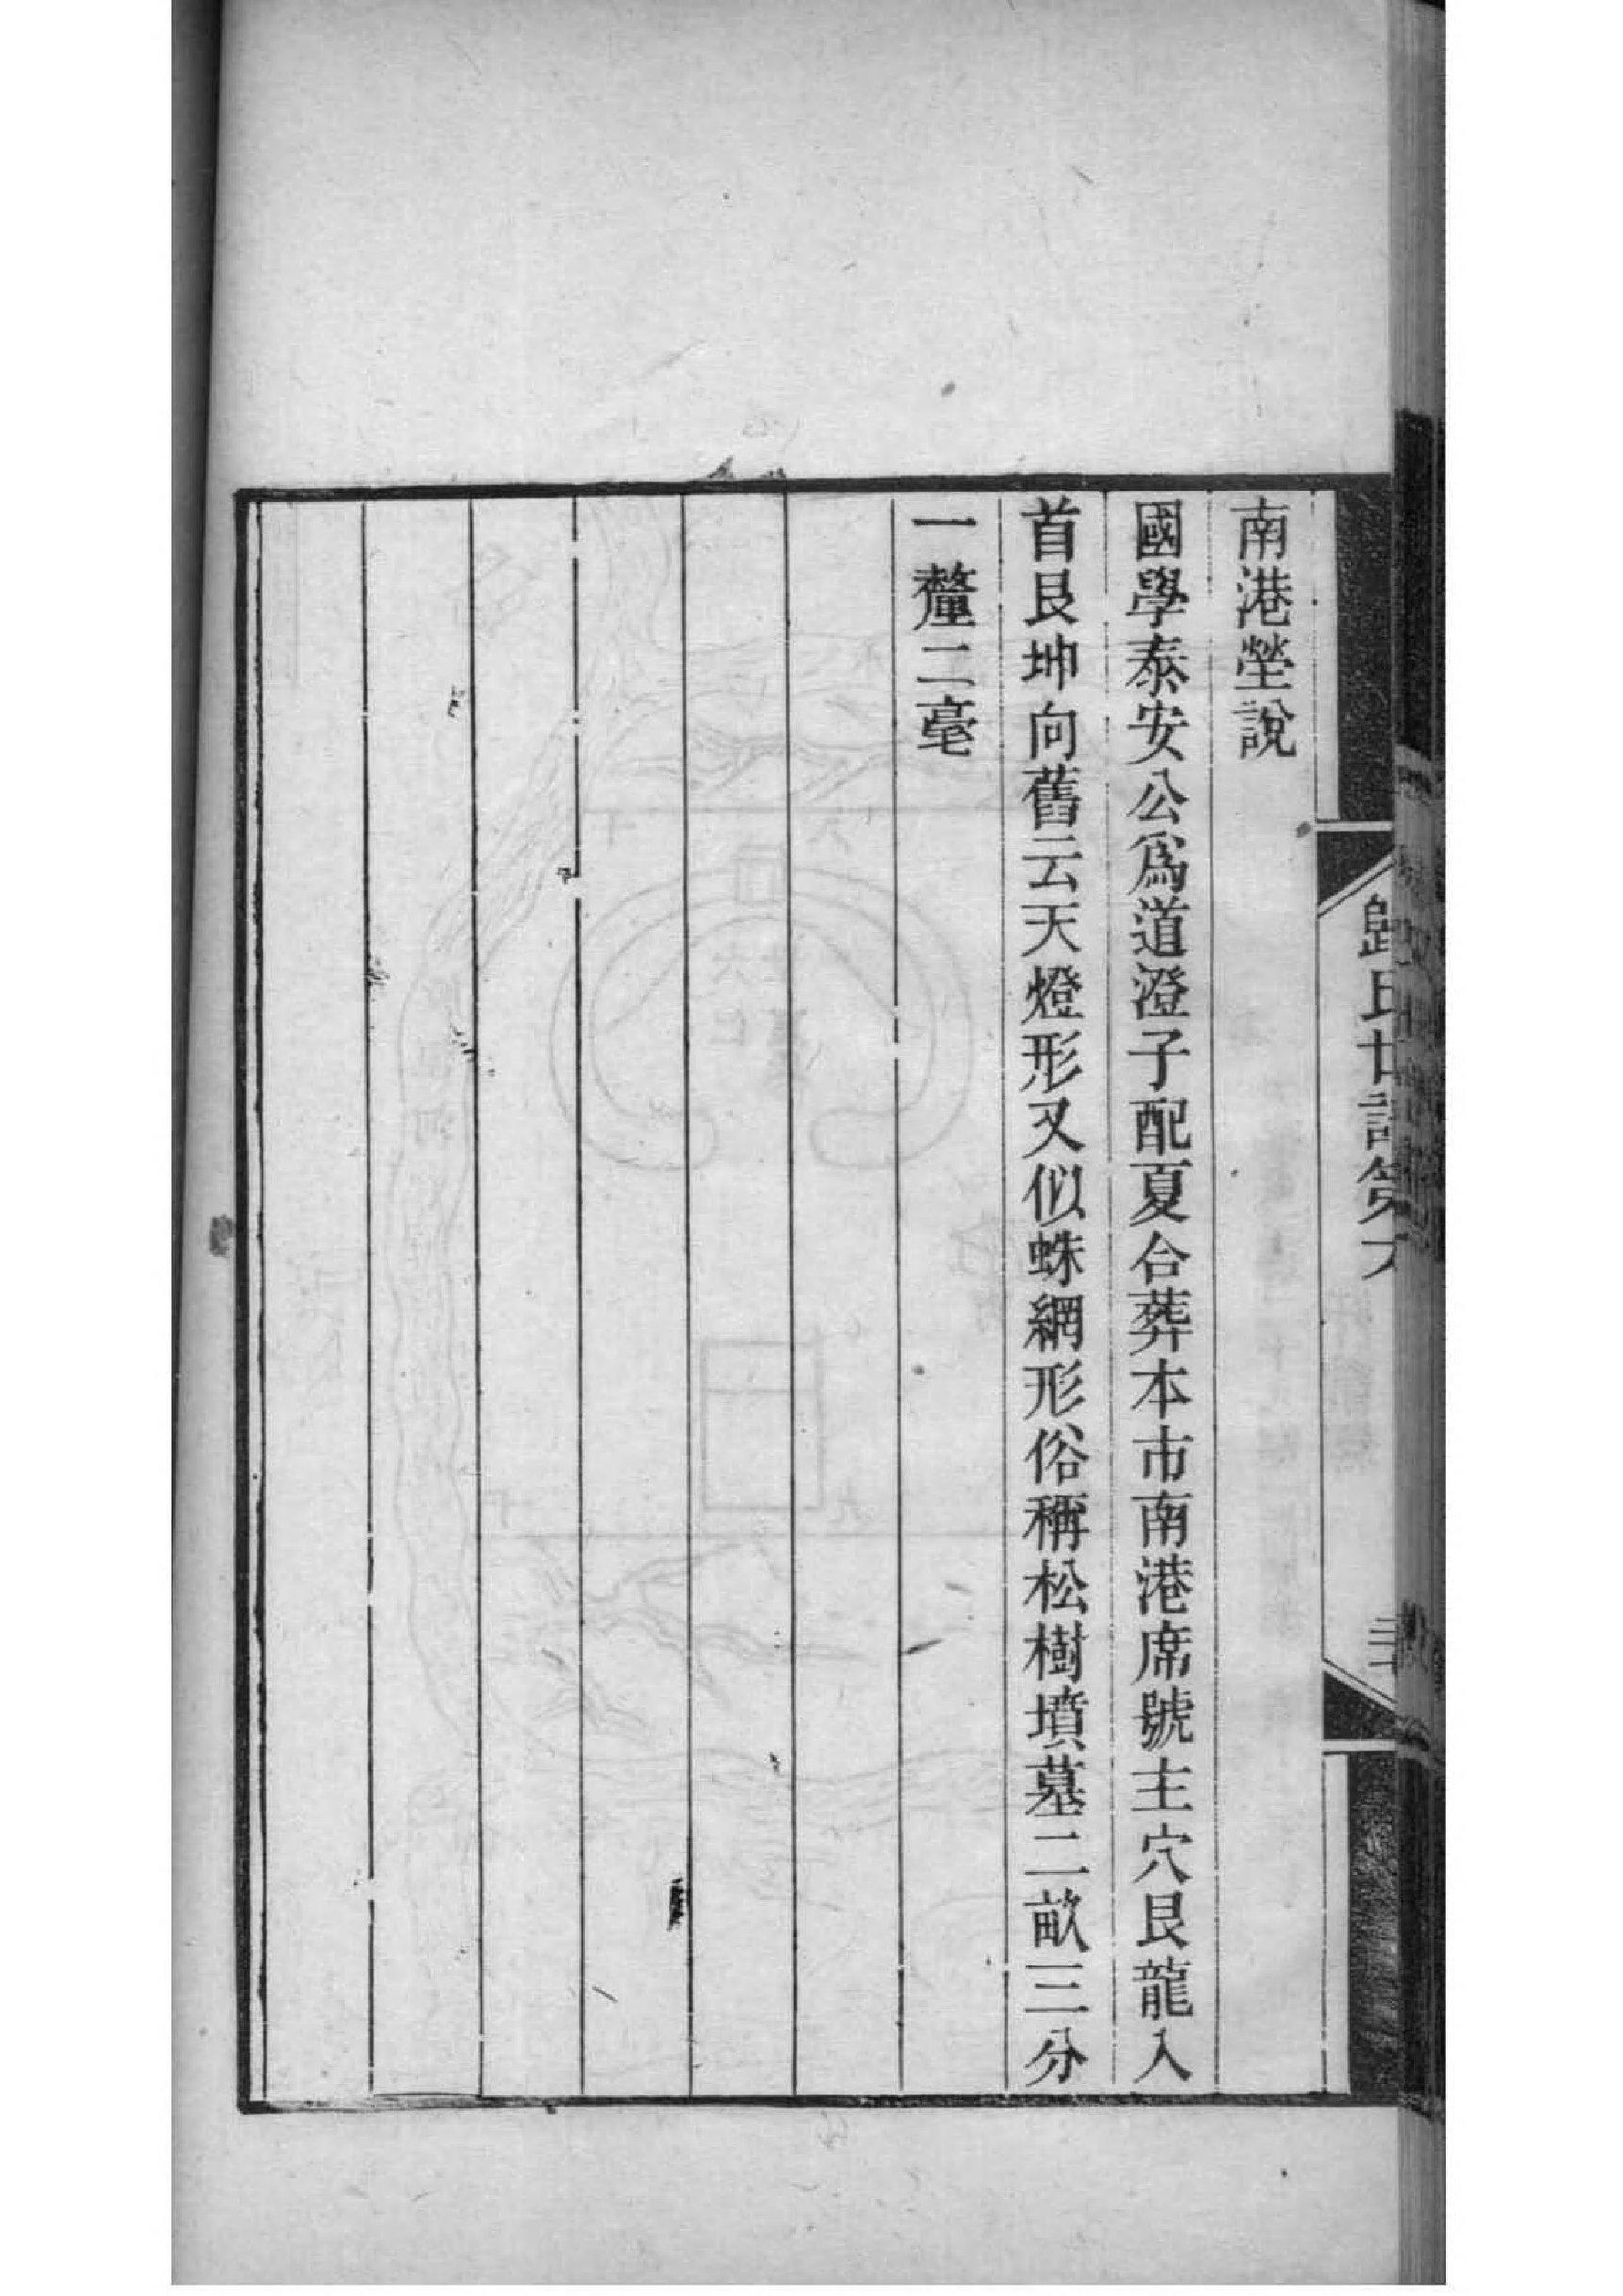 南港塋說
國學泰安公爲道澄子配夏合葬本市南港席號主穴艮龍入
首艮坤向舊云天燈形又似蛛網形俗稱松樹墳墓二畝三分
一釐二亳
歸氏世譜第六